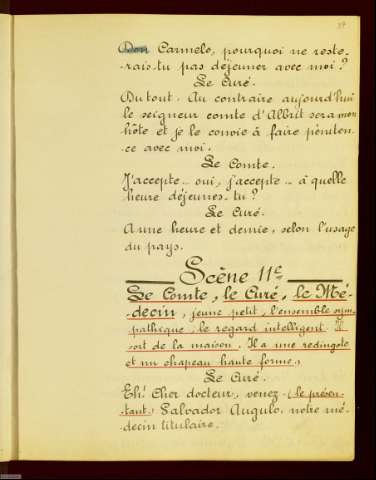 37
Don Carmelo, pourquoi ne reste-
-rais-tu pas déjeuner avec moi?
Le Curé.
Du tout. Au contraire aujourd'hui
le seigneur comte d'Albrit sera mon
hôte et je le convie à faire péniten-
ce avec moi.
Le Comte.
J'accepte... oui, j'accepte... à quelle
heure déjeunes-tu?
Le Curé.
A une heure et demie, selon l'usage
du pays.
Scène 11e
Le Comte, le Curé, le Mé-
-decin, jeune petit, l'ensemble sym-
pathique, le regard intelligent. Il
sort de la maison. Il a une redingote
et un chapeau haute forme.
Le Curé.
Eh! Cher docteur, venez (le présen-
tant) Salvador Angulo, notre mé-
decin titulaire.